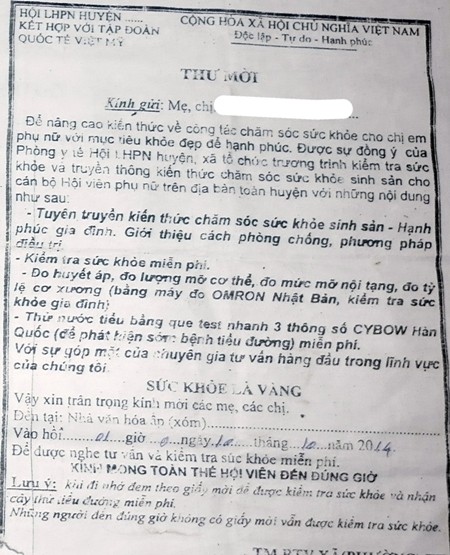 HỘI LHPN HUYỆN ......
CỘNG HÒA XÃ HỘI CHỦ NGHĨA VIỆT NAM
KẾT HỢP VỚI TẬP ĐOÀN
Độc lập - Tự do - Hạnh phúc
QUỐC TẾ VIỆT MỸ
THƯ MỜI
Kính gửi: Mẹ, chị
Để nâng cao kiến thức về công tác chăm sóc sức khỏe cho chị em
phụ nữ với mục tiêu khỏe đẹp để hạnh phúc. Được sự đồng ý của
Phòng y tế Hội LHPN huyện, xã tổ chức trương trình kiểm tra sức
khỏe và truyền thông kiến thức chăm sóc sức khỏe sinh sản cho
cán bộ Hội viên phụ nữ trên địa bàn toàn huyện với những nội dung
như sau:
- Tuyên truyền kiến thức chăm sóc sức khỏe sinh sản - Hạnh
phúc gia đình. Giới thiệu cách phòng chống, phương pháp
điều trị.
- Kiểm tra sức khỏe miễn phí.
- Đo huyết áp, đo lượng mỡ cơ thể, đo mức mỡ nội tạng, đo tỷ
lệ cơ xương (bằng máy đo OMRON Nhật Bản, kiểm tra sức
khỏe gia đình)
- Thử nước tiểu bằng que test nhanh 3 thông số CYBOW Hàn
Quốc (để phát hiện sớm bệnh tiểu đường) miễn phí.
Với sự góp mặt của chuyên gia tư vấn hàng đầu trong lĩnh vực
của chúng tôi.
SỨC KHỎE LÀ VÀNG
Vậy xin trân trọng kính mời các mẹ, các chị.
Đến tại: Nhà văn hóa ấp (xóm)
Vào hồi....01....giờ.......ngày.........tháng...10....năm 2014.
Để được nghe tư vấn và kiểm tra sức khỏe miễn phí.
KÍNH MONG TOÀN THỂ HỘI VIÊN ĐẾN ĐÚNG GIỜ
Lưu ý: khi đi nhớ đem theo giấy mời để được kiểm tra sức khỏe và nhận
cây thử tiểu đường miễn phí.
Những người đến đúng giờ không có giấy mời vẫn được kiểm tra sức khỏe.